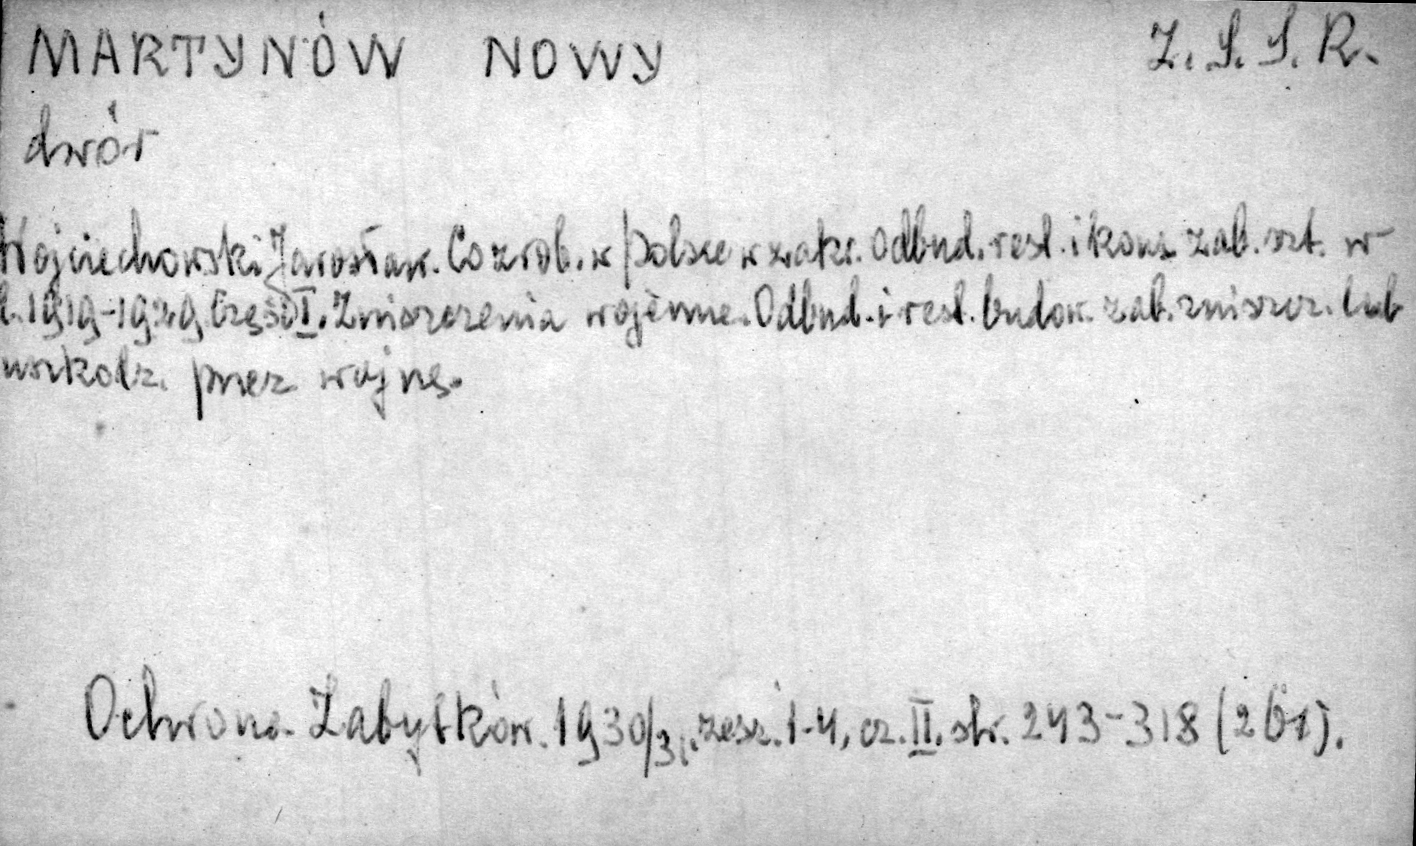 MARTYNÓW NOWY Z.S.S.R.
dwór
Wojciechowski Jarosław. Co zrob. w Polsce w zakr. odbud. rest. i kons. zab. szt. w
l. 1919-1929 Część I. Zniszczenia wojenne. Odbud. i rest. budow. zab. zniszcz. lub
uszkodz. przez wojnę.
Ochrona Zabytków. 1930/31. zesz. 1-4, cz. II. str. 243-318 (261).